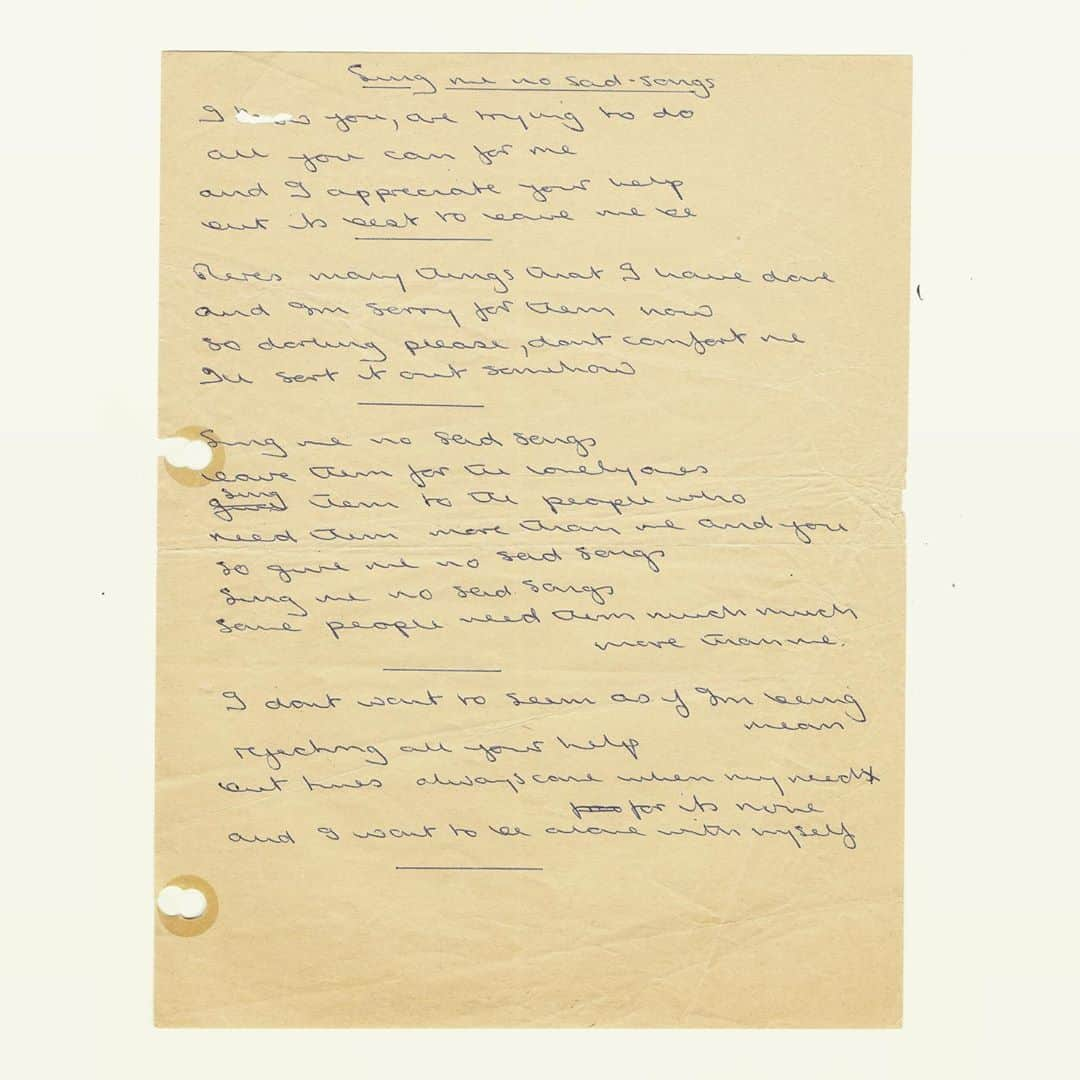 Sing me no sad-songs
I know you, are trying to do
all you can for me
and I appreciate your help
but its best to leave me be
Theres many things that I have done
and Im sorry for them now
so darling please, dont comfort me
Ill sort it out somehow
Sing me no sad songs
leave them for the lonely ones
sing
them to the people who
need them more than me and you
so give me no sad songs
Sing me no sad songs
some people need them much much
more than me.
I dont want to seem as if Im being
mean
rejecting all your help
but times always come when my need
for its none
and I want to be alone with myself